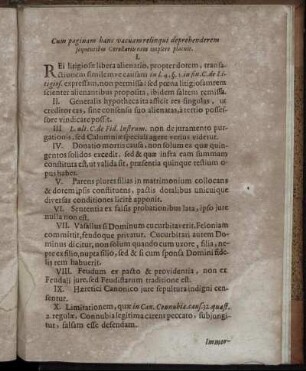 Cum paginam hanc vacuam relinqui deprehenderem
sequentibus Corollariis eam implere placuit.
I.
REi litigiosæ libera alienatio, propter dotem, trans-
actionem similemve causam in l. 4. §. 1. in fin. C. de Li-
tigios. expressim, non permissa sed pœna litigiosam rem
scienter alienantibus proposita, ibidem saltem remissa.
II. Generalis hypotheca ita afficit res singulas, ut
creditor eas, sine consensu suo alienatas, à tertio posses-
sore vindicare possit.
III. L. ult. C. de Fid. Instrum. non de juramento pur-
gationis, sed Calumniæ speciali agere verius videtur.
IV. Donatio mortis causâ, non solum ea quæ quin-
gentos solidos excedit, sed & quæ infra eam summam
constituta est, ut valida sit, præsentia quinque testium o-
pus habet.
V. Parens plures filias in matrimonium collocans
& dotem ipsis constituens, pactis dotalibus unicuique
diversas conditiones licitè apponit.
VI. Sententia ex falsis probationibus lata, ipso jure
nulla non est.
VII. Vasallus si Dominum cucurbitaverit, Feloniam
committit, feudoque privatur. Cucurbitari autem Do-
minus dicitur, non solum quando cum uxore, filia, ne-
pte ex filio, nupta filio, sed & si cum sponsa Domini fide-
lis rem habuerit.
VIII. Feudum ex pacto & providentia, non ex
Feudali jure, sed Feudistarum traditione est.
IX. Hæretici Canonico jure sepultura indigni cen-
sentur.
X. Limitationem, quæ in Can. Connubia. caus. 32. quæst.
2. regulæ. Connubia legitima carent peccato, subjungi-
tur, falsam esse defendam.
Immor-